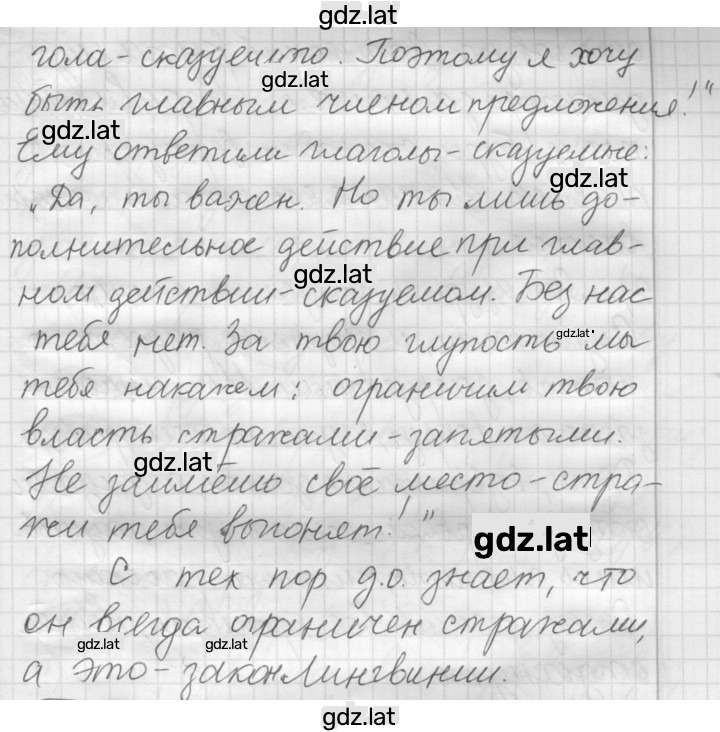 gdz.lat
гола - сказуемого. Поэтому я хочу
gdz.lat
быть главным членом предложения!"
gdz.lat
Ему ответили глаголы - сказуемые:
gdz.lat
„Да, ты важен. Но ты лишь до-
полнительное действие при глав-
gdz.lat
ном действии - сказуемом. Без нас
тебя нет. За твою глупость мы
gdz.lat
тебя накажем: ограничим твою
власть стражами - запятыми.
gdz.lat
Не займёшь своё место - стра-
жи тебя выгонят!"
gdz.lat
С тех пор д.о. знает, что
он всегда ограничен стражами,
gdz.lat gdz.lat
а это - закон Лингвинии.
gdz.lat